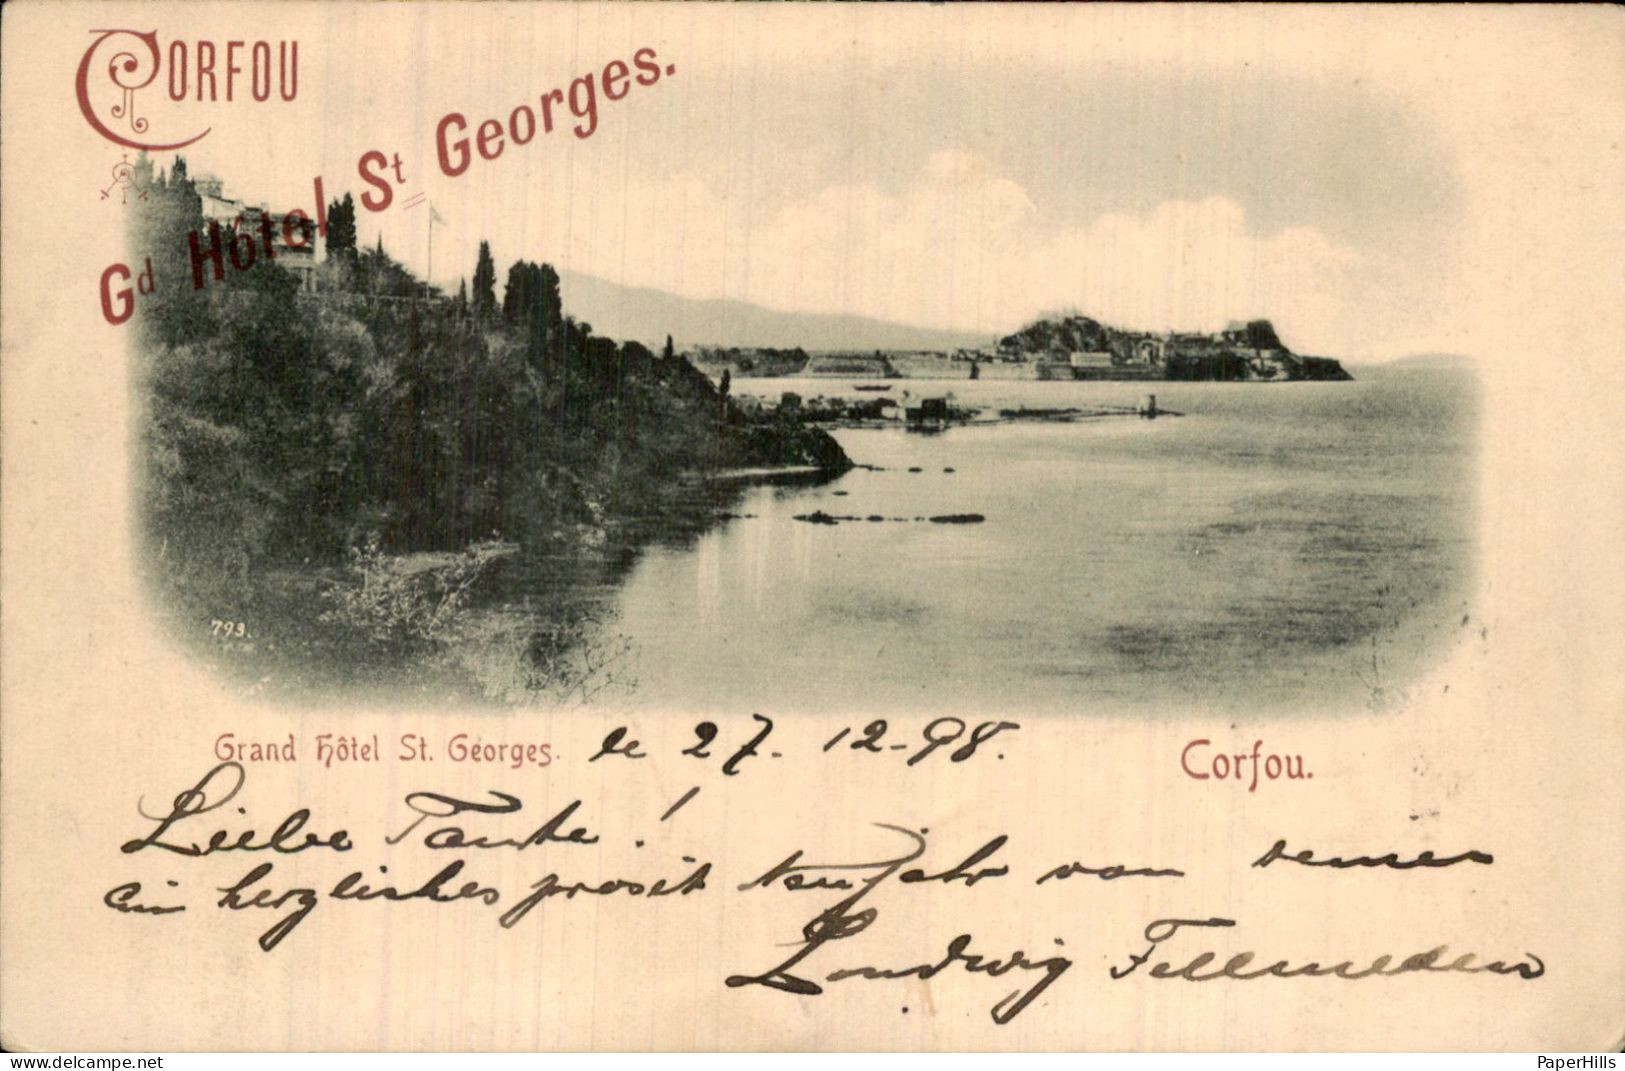 CORFOU
Gd Hôtel St Georges.
793.
Grand Hôtel St. Georges. le 27. 12-98. Corfou.
Liebe Tante!
Ein herzliches prosit Neujahr von
Ludwig
PaperHills